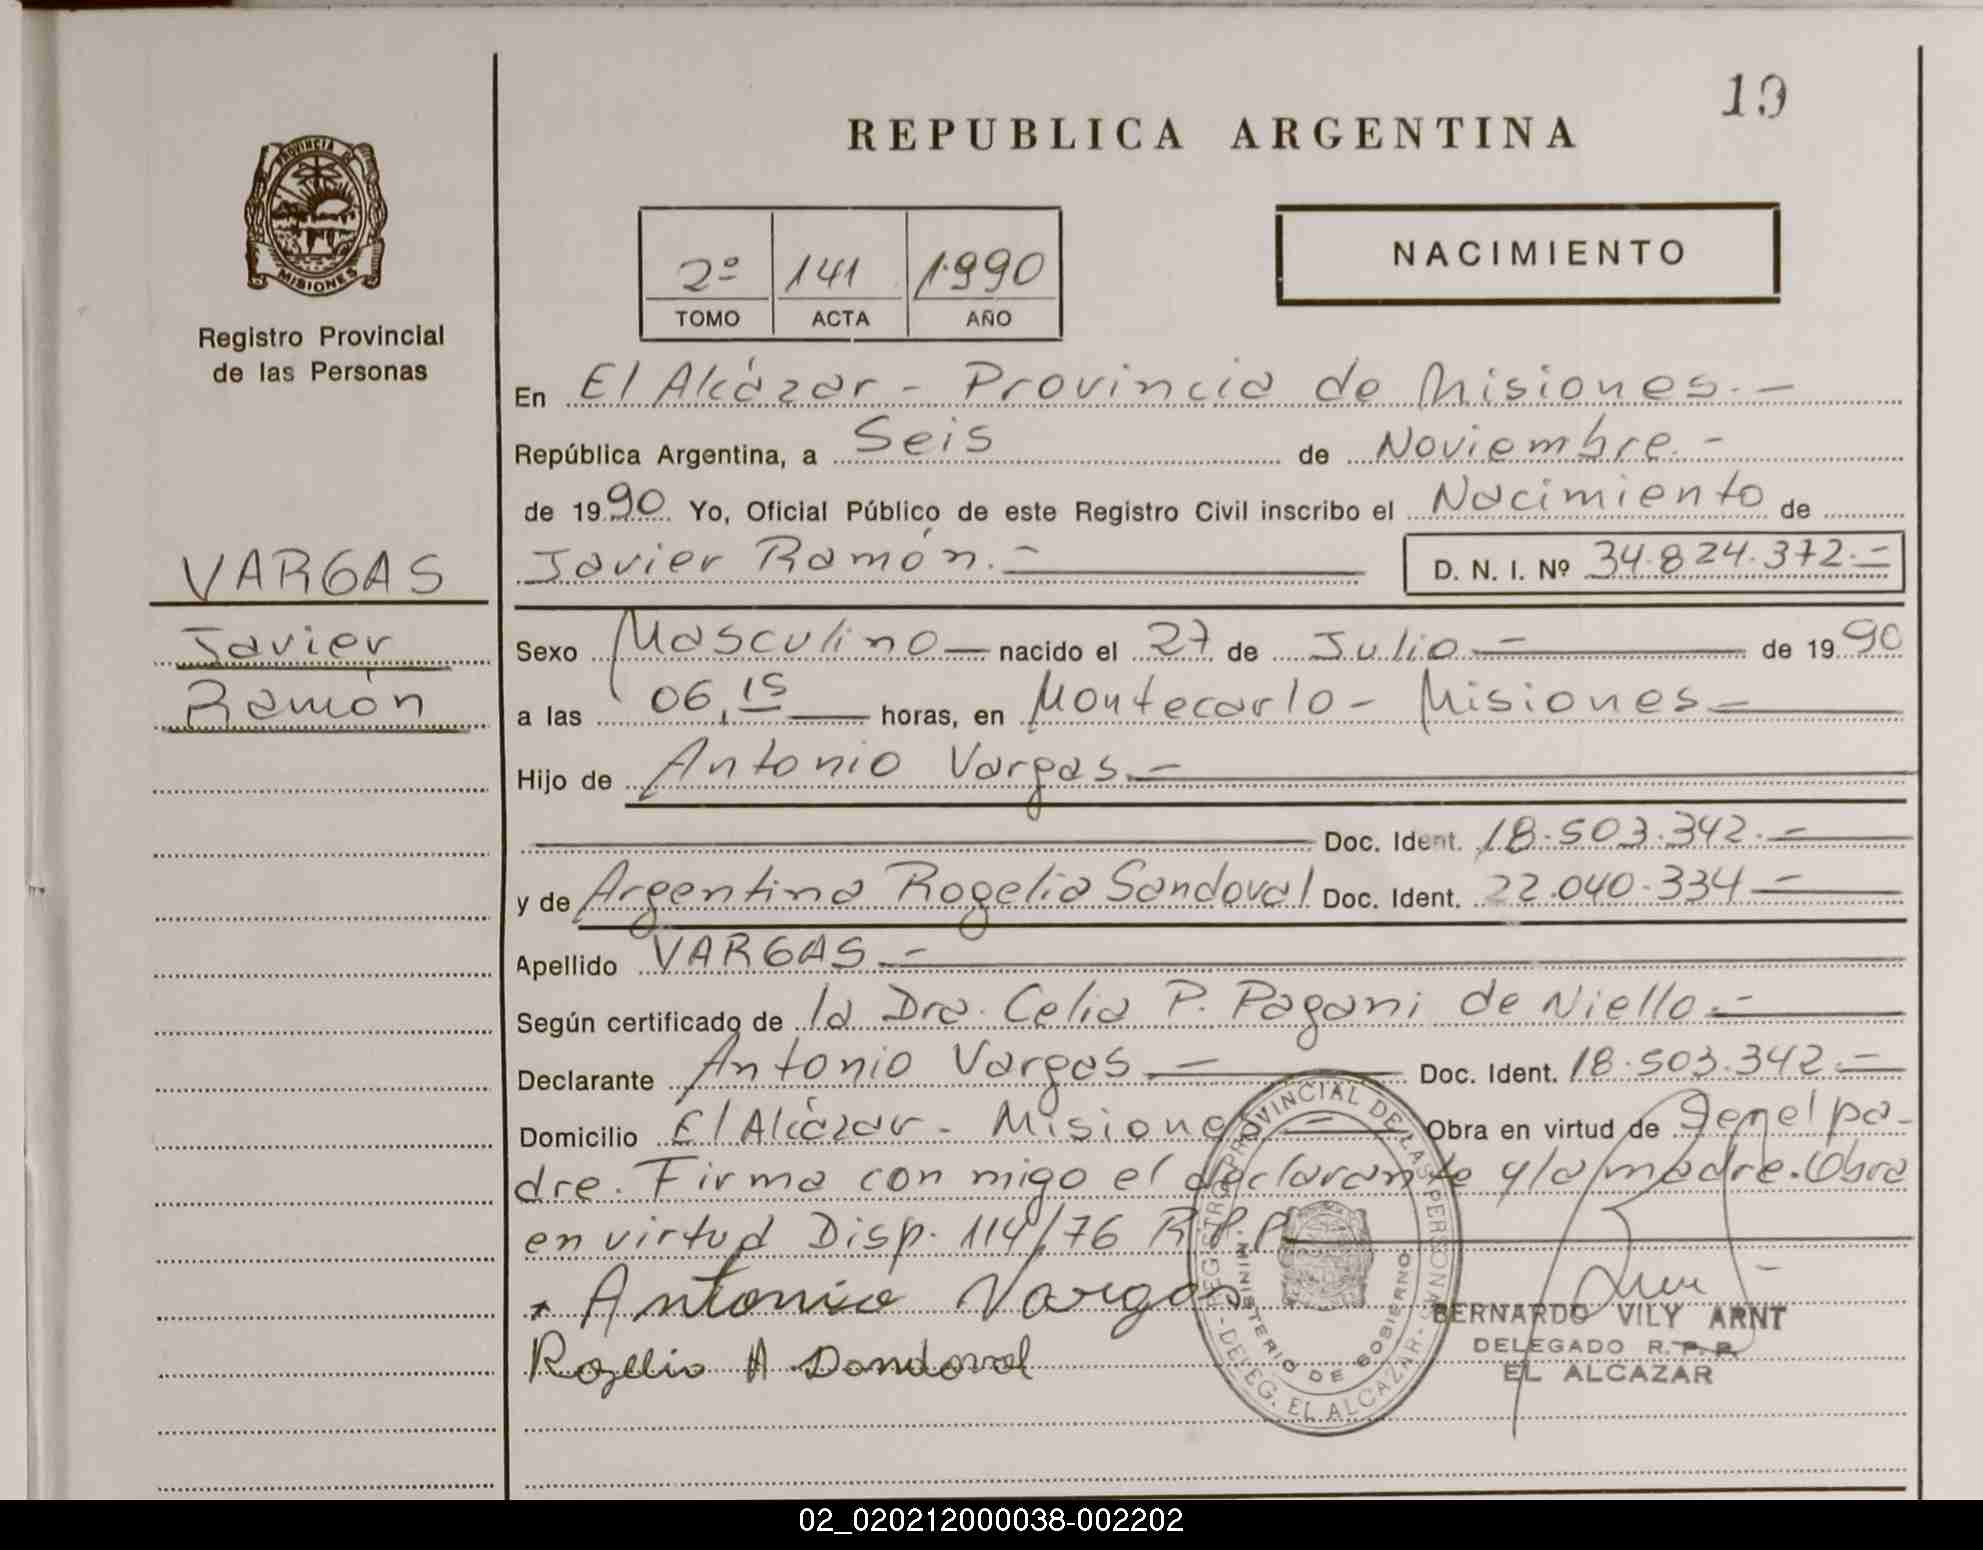 19
REPUBLICA ARGENTINA
PROVINCIA DE
MISIONES
Registro Provincial
de las Personas
2º 141 1990
TOMO ACTA AÑO
NACIMIENTO
En El Alcázar - Provincia de Misiones.-
República Argentina, a Seis de Noviembre.-
de 1990 Yo, Oficial Público de este Registro Civil inscribo el Nacimiento de
VARGAS
Javier Ramón.- D. N. I. Nº 34.824.372.-
Javier
Ramón
Sexo Masculino nacido el 27 de Julio.- de 1990
a las 06,15 horas, en Montecarlo - Misiones-
Hijo de Antonio Vargas.-
Doc. Ident. 18.503.342.-
y de Argentina Rogelia Sandoval Doc. Ident. 22.040.334.-
Apellido VARGAS.-
Según certificado de la Dra. Celia P. Pagani de Niello.-
Declarante Antonio Vargas.- Doc. Ident. 18.503.342.-
Domicilio El Alcázar - Misiones Obra en virtud de ser el pa-
dre. Firma con migo el declarante y la madre. Obra
en virtud Disp. 114/76 R.P.P.
Antonio Vargas
Rogelia A Sandoval
REGISTRO PROVINCIAL DE LAS PERSONAS
MINISTERIO DE GOBIERNO
- DELEG. EL ALCAZAR -
BERNARDO VILY ARNT
DELEGADO R.P.P.
EL ALCAZAR
02_020212000038-002202